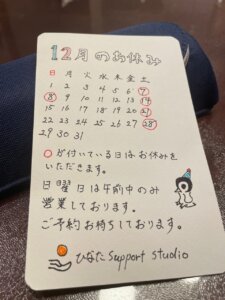 12月のお休み
日 月 火 水 木 金 土
1 2 3 4 5 6 7
8 9 10 11 12 13 14
15 16 17 18 19 20 21
22 23 24 25 26 27 28
29 30 31
○が付いている日はお休みを
いただきます。
日曜日は午前中のみ
営業しております。
ご予約お待ちしております。
ひなた Support Studio